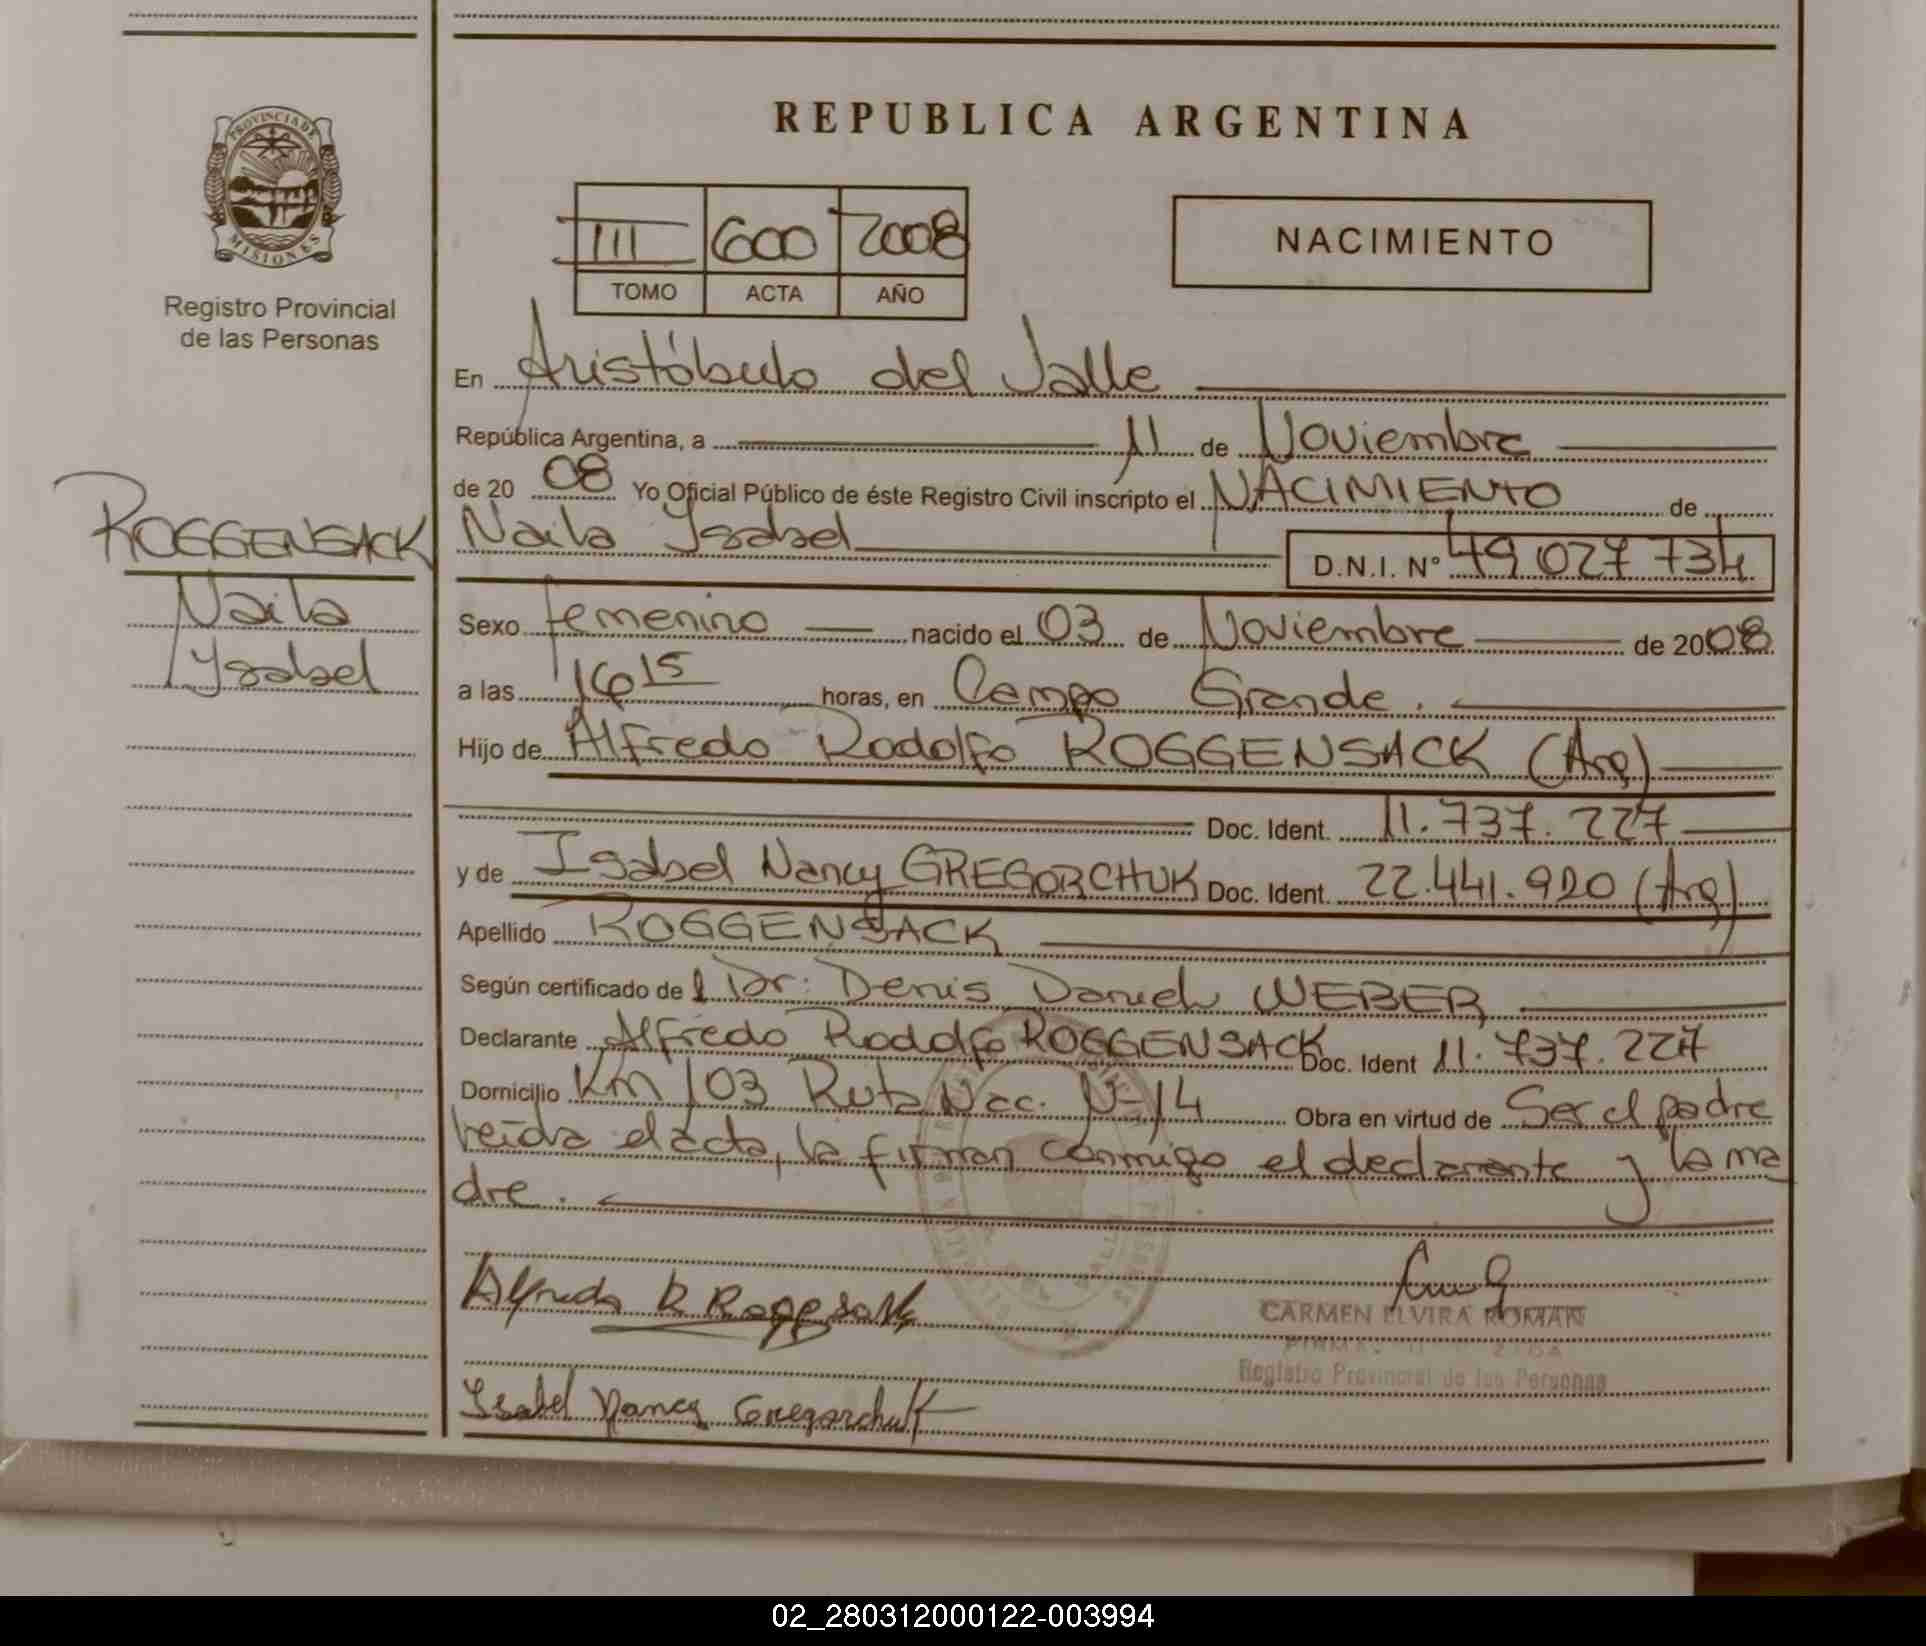 PROVINCIA DE
MISIONES
Registro Provincial
de las Personas
ROGGENSACK
Naila
Ysabel
REPUBLICA ARGENTINA
III 600 2008
TOMO ACTA AÑO
NACIMIENTO
En Aristóbulo del Valle
República Argentina, a 11 de Noviembre
de 20 08 Yo Oficial Público de éste Registro Civil inscripto el NACIMIENTO de
Naila Ysabel D.N.I. N° 49 027 734
Sexo femenino nacido el 03 de Noviembre de 2008
a las 16 15 horas, en Campo Grande.
Hijo de Alfredo Rodolfo ROGGENSACK (Arg)
Doc. Ident. 11.737.227
y de Isabel Nancy GREGORCHUK Doc. Ident. 22.441.920 (Arg)
Apellido ROGGENSACK
Según certificado del Dr. Denis Daniel WEBER
Declarante Alfredo Rodolfo ROGGENSACK Doc. Ident 11.737.227
Domicilio Km 103 Ruta Nac. Nº 14 Obra en virtud de Ser el padre
leída el acta, la firman conmigo el declarante y la ma
dre.
Alfredo R Roggensack
CARMEN ELVIRA ROMAN
Registro Provincial de las Personas
Isabel Nancy Gregorchuk
02_280312000122-003994